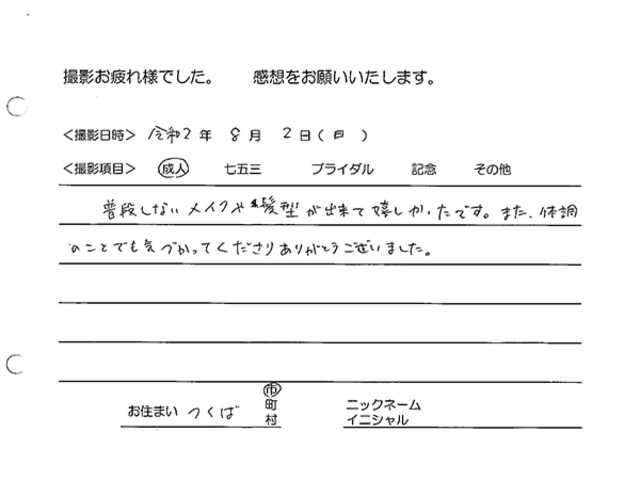 撮影お疲れ様でした。　感想をお願いいたします。
<撮影日時> 令和2年 8月 2日(日)
<撮影項目> 成人 七五三 ブライダル 記念 その他
普段しないメイクや髪型が出来て嬉しかったです。また、体調
のことでも気づかってくださりありがとうございました。
お住まい つくば 市 町 村
ニックネーム
イニシャル